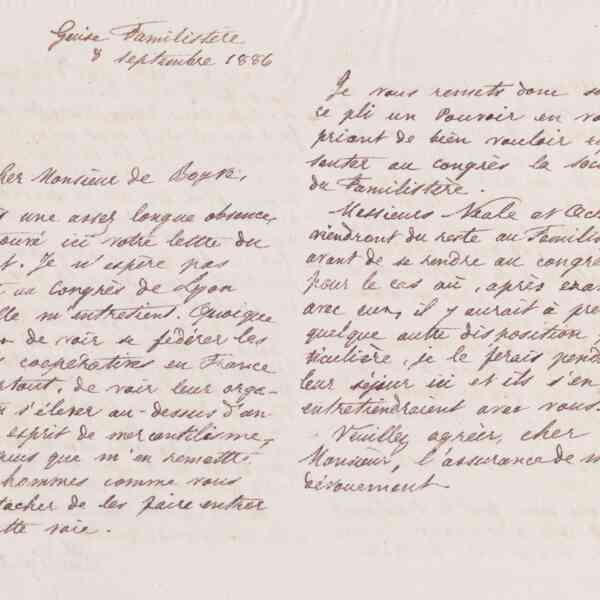 Guise Familistère
8 septembre 1886
her Monsieur de Boyve,
s une assez longue absence,
ouvé ici votre lettre du
t. Je n'espère pas
au Congrès de Lyon
lle m'entretient. Quoique
n de voir se fédérer les
s coopératives en France
rtout, de voir leur orga-
s'élever au-dessus d'un
esprit de mercantilisme,
puis que m'en remettre
hommes comme vous
tacher de les faire entrer
tte voie.
Je vous remets donc so
ce pli un Pouvoir en vo
priant de bien vouloir re
senter au congrès la Soc
du Familistère.
Messieurs Neale et
viendront du reste au Famili
avant de se rendre au congrè
pour le cas où, après exa
avec eux, il y aurait à pre
quelque autre disposition
ticulière, je le ferais pend
leur séjour ici et ils s'en
entretiendraient avec vous.
Veuillez agréer, cher
Monsieur, l'assurance de m
dévouement